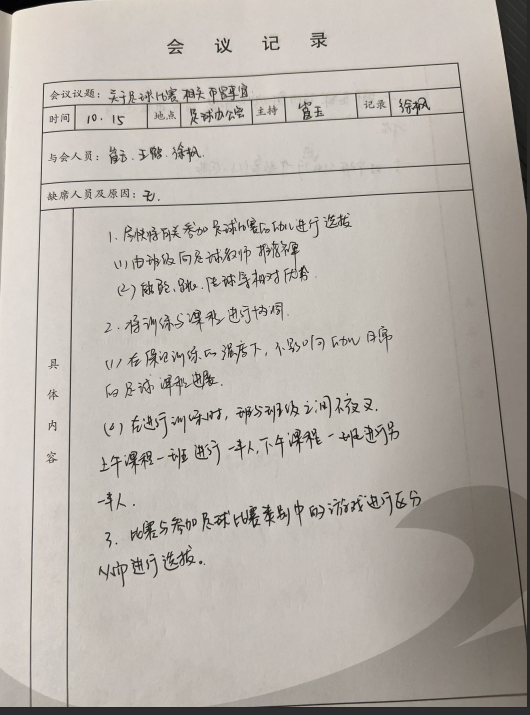 会议记录
会议议题：关于足球比赛相关布置事宜
时间 10.15 地点 足球办公室 主持 肖玉 记录 徐枫
与会人员：肖玉、王 徐枫.
缺席人员及原因：无.
具体内容
1. 尽快将有关参加足球比赛的幼儿进行选拔
(1) 由班级向足球教师推荐
(2) 跑、跳、传球等相对优秀
2. 将训练与课程进行协调.
(1) 在保证训练的强度下，不影响幼儿日常
的足球课程进展.
(2) 在进行训练时，班与班级之间不交叉.
上午课程一班进行一半人,下午课程一班进行另
一半人.
3. 比赛与参加足球比赛类别中的游戏进行区分
从中进行选拔。